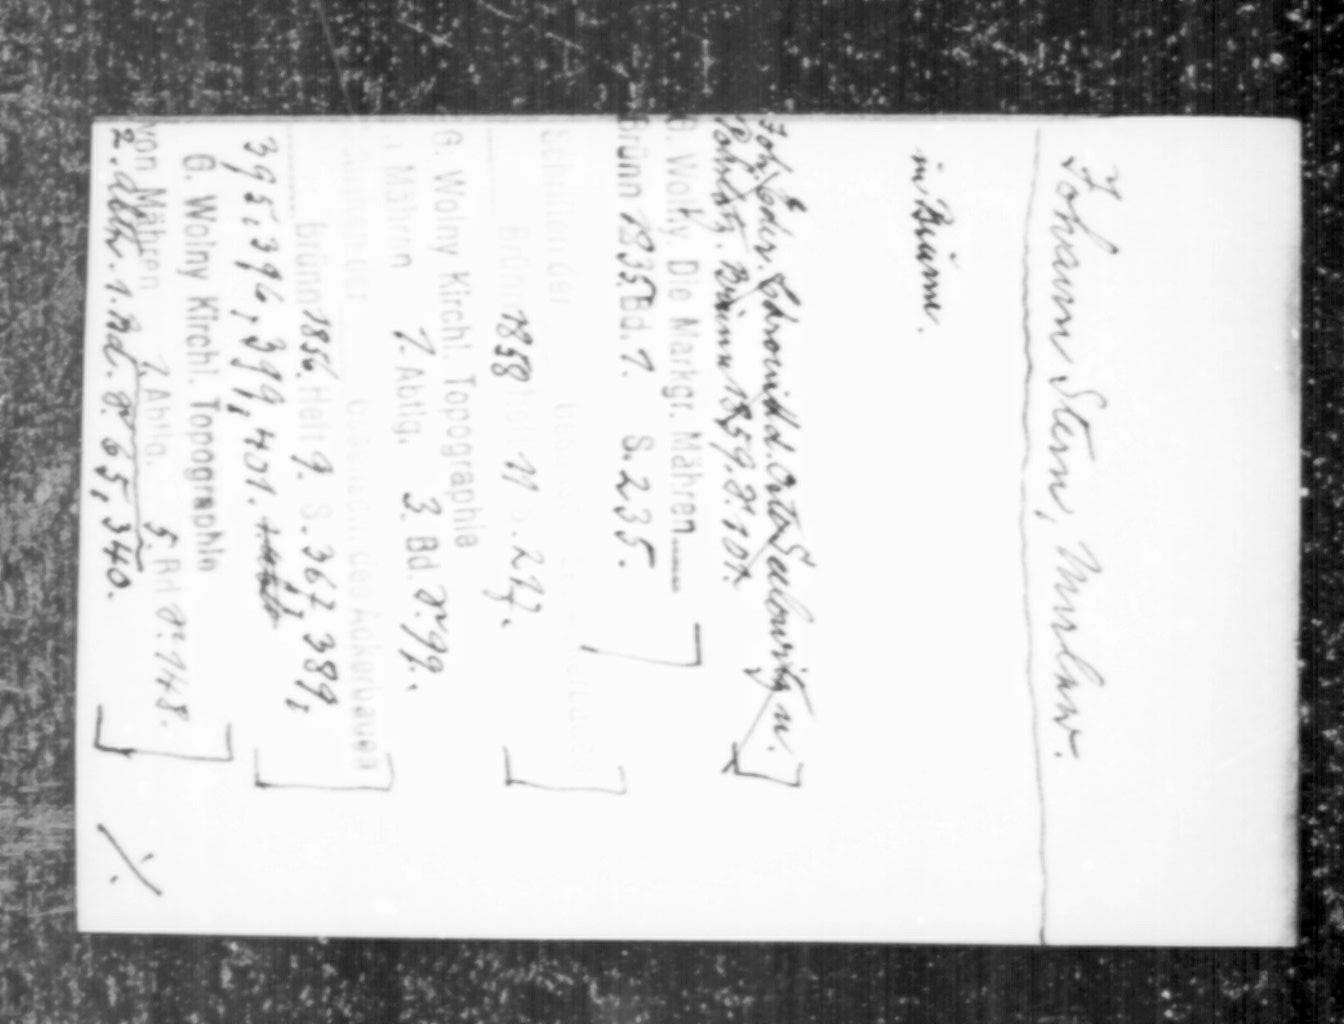 Johann Stern, Maler.
in Brünn.
Joh. Eder. Chronik d. Orte Seelowitz u.
Pohrlitz. Brünn 1859. S. 101.
G. Wolny. Die Markgr. Mähren
Brünn 1835 Bd. 1. S. 235.
Schriften der
Brünn 1858 11 S. 247.
G. Wolny Kirchl. Topographie
Mähren 1. Abtlg. 3. Bd. S. 99.
des Ackerbaues
Brünn 1856. Heft 9. S. 367, 389,
395, 396, 399, 401.
G. Wolny Kirchl. Topographie
von Mähren Abtlg. S. 148.
2. Abth. 1. Bd. S. 65, 340.